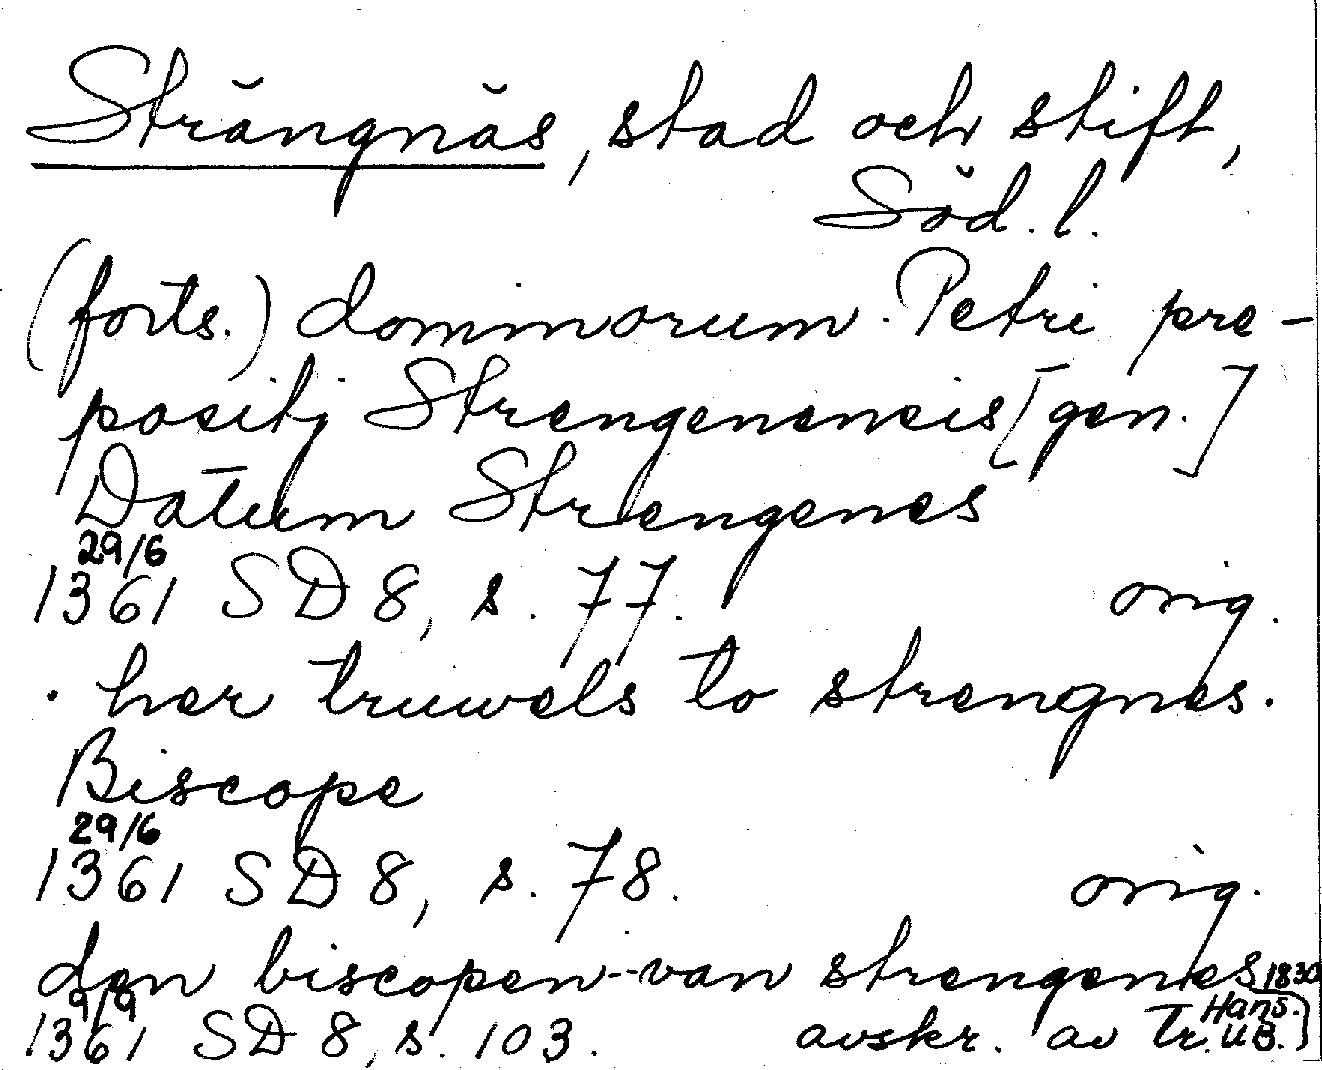 Strängnäs, stad och stift,
Söd. l.
(forts.) dominorum Petri pre-
positj Strengenensis [gen.]
Datum Strengenes
29/6
1361 SD 8, s. 77. orig.
· her truwels to strengnes.
Biscope
29/6
1361 SD 8, s. 78. orig.
den biscopen--van strengenes
9/9
1361 SD 8, s. 103. avskr. av tr. 1830
Hans.
UB.)